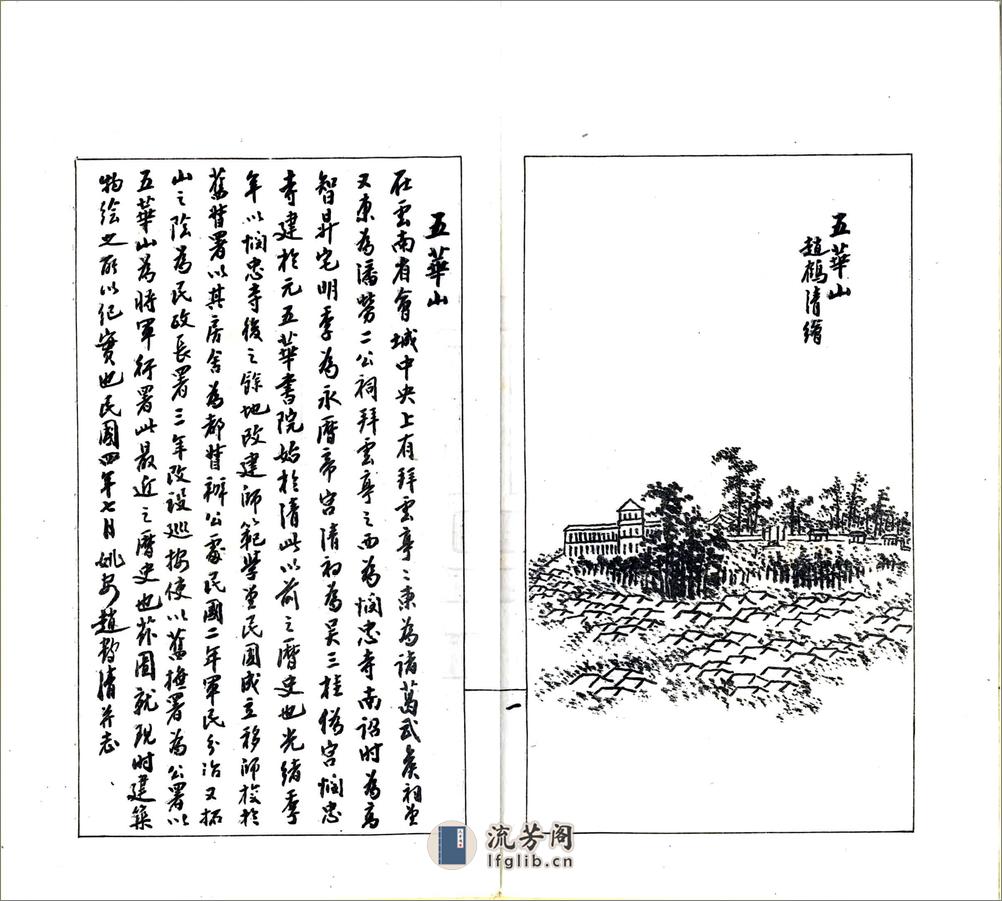 五華山
趙鶴清繪
一
五華山
在雲南省會城中央上有拜雲亭〻東為諸葛武矦祠堂
又東為潘勞二公祠拜雲亭之西為憫忠寺南詔時為高
智昇宅明季為永曆帝宮清初為吳三桂偽宮憫忠
寺建於元五華書院始於清此以前之曆史也光緒季
年以憫忠寺後之餘地改建師範學堂民國成立移師校於
舊督署以其房舍為都督辦公處民國二年軍民分治又拓
山之陰為民政長署三年改設巡按使以舊撫署為公署以
五華山為將軍行署此最近之曆史也茲圖就現時建築
物繪之所以紀實也民國四年七月姚安趙鶴清并志
流芳阁
lfglib.cn